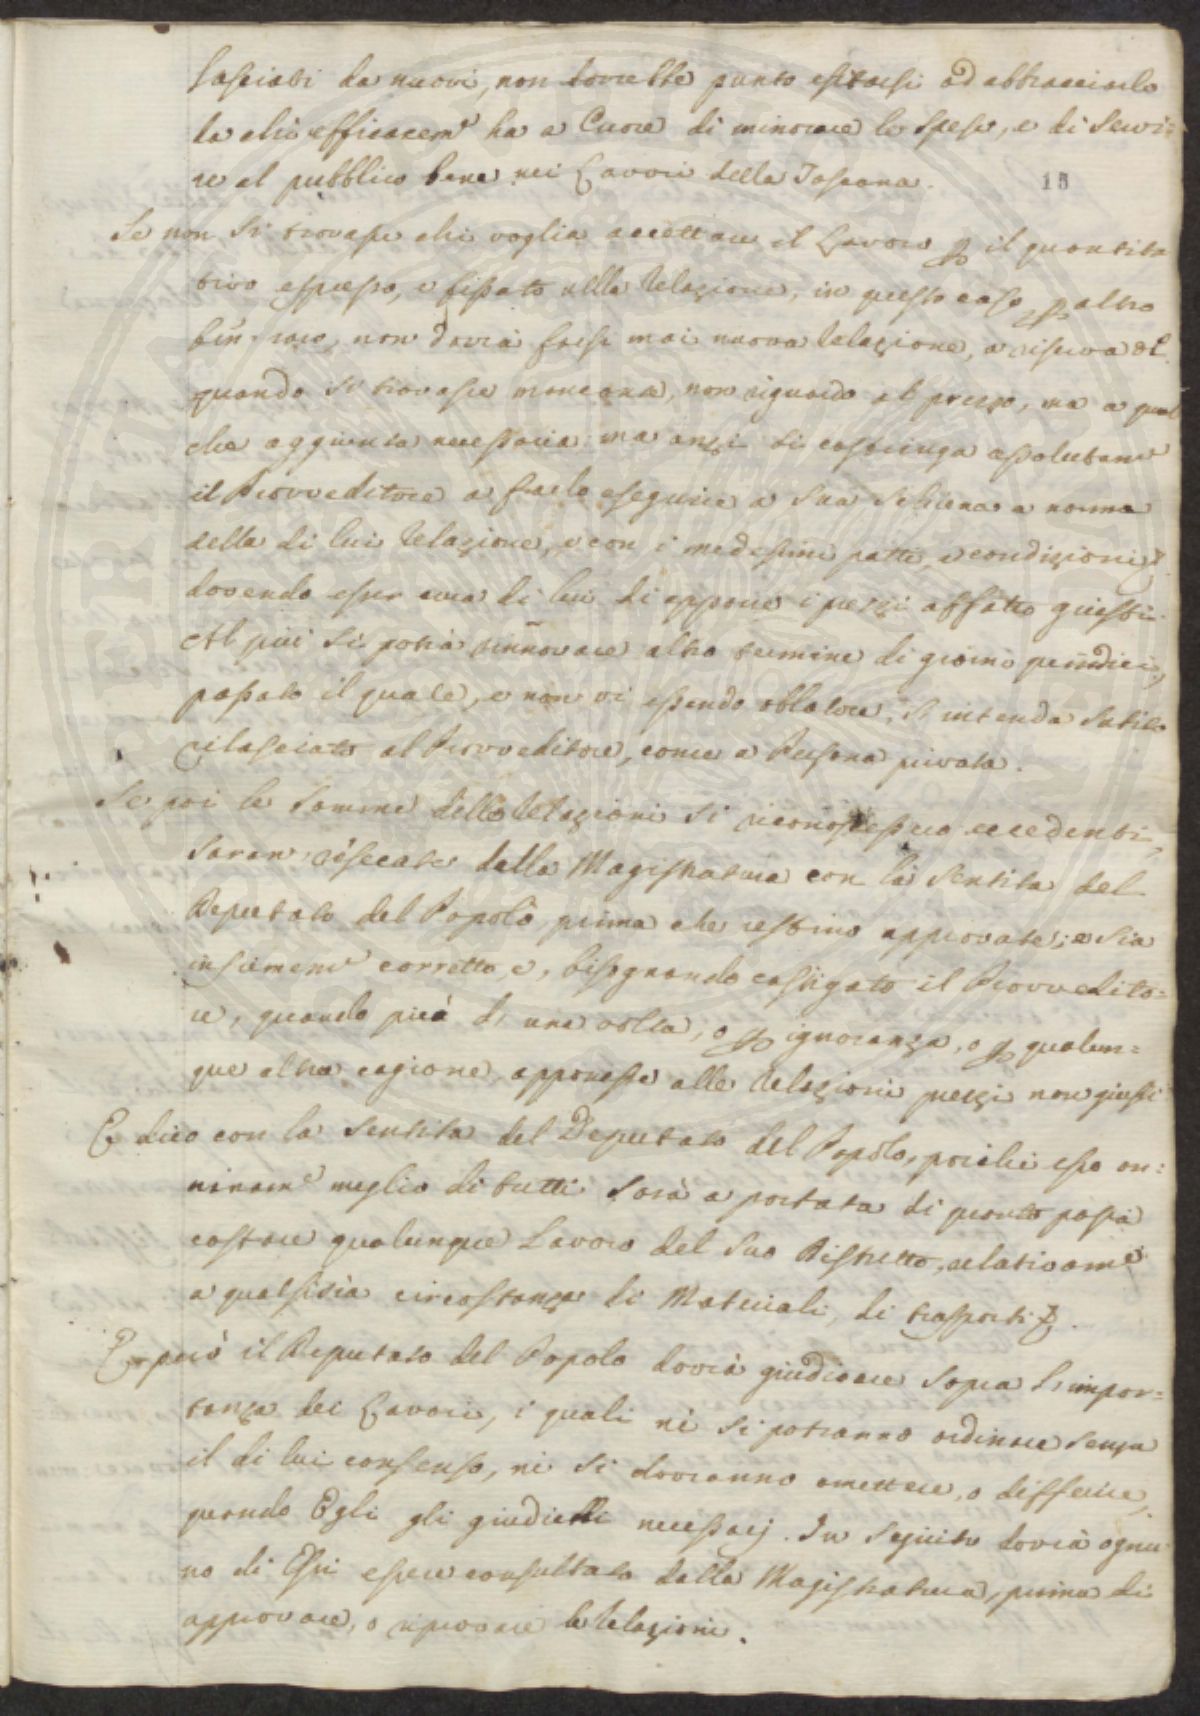 lasciati da nuovi, non dovrebbe punto esitarsi ad abbracciarlo
da chi efficacem.e ha a Cuore di minorare le spese, e di servi=
re al pubblico bene nei Lavori della Toscana.
15
Se non si trovasse chi voglia accettare il Lavoro p il quantita
tivo espresso, e fissato nella Relazione, in questo caso p altro
ben raro, non dovrà farsi mai nuova Relazione, a riserva di
quando si trovasse mancanza, non riguardo al prezzo, ma a qual
che aggiunta necessaria: ma anzi si costringa assolutam.e
il Provveditore a farlo eseguire a sua schiena a norma
della di lui Relazione, e con i medesimi patti, e condizioni
dovendo esser cura di lui di apporre i prezzi affatto giusti.
Al più si potrà rinnovare altro termine di giorni quindici,
passato il quale, e non vi essendo oblatore, s'intenda subito
rilasciato al Provveditore, come a Persona privata.
Se poi le somme delle Relazioni si riconoscessero eccedenti,
saran resecate dalla Magistratura con la sentita del
Deputato del Popolo prima che restino approvate; e sia
insiemem.e corretto, e, bisognando castigato il Provvedito=
re, quando più di una volta, o p ignoranza, o p qualun=
que altra cagione, apponesse alle Relazioni prezzi non giusti
E dico con la sentita del Deputato del Popolo, poichè esso on=
ninam.e meglio di tutti sarà a portata di quanto possa
costare qualunque Lavoro del suo Distretto, relativam.e
a qualsisia circostanza di Materiali, di trasporti &.
E però il Deputato del Popolo dovrà giudicare sopra l'impor=
tanza dei Lavori, i quali nè si potranno ordinare senza
il di lui consenso, nè si dovranno omettere, o differire,
quando Egli gli giudichi necessarj. In seguito dovrà ognu
no di Essi essere consultato dalla Magistratura, prima di
approvare, o riprovare le Relazioni.